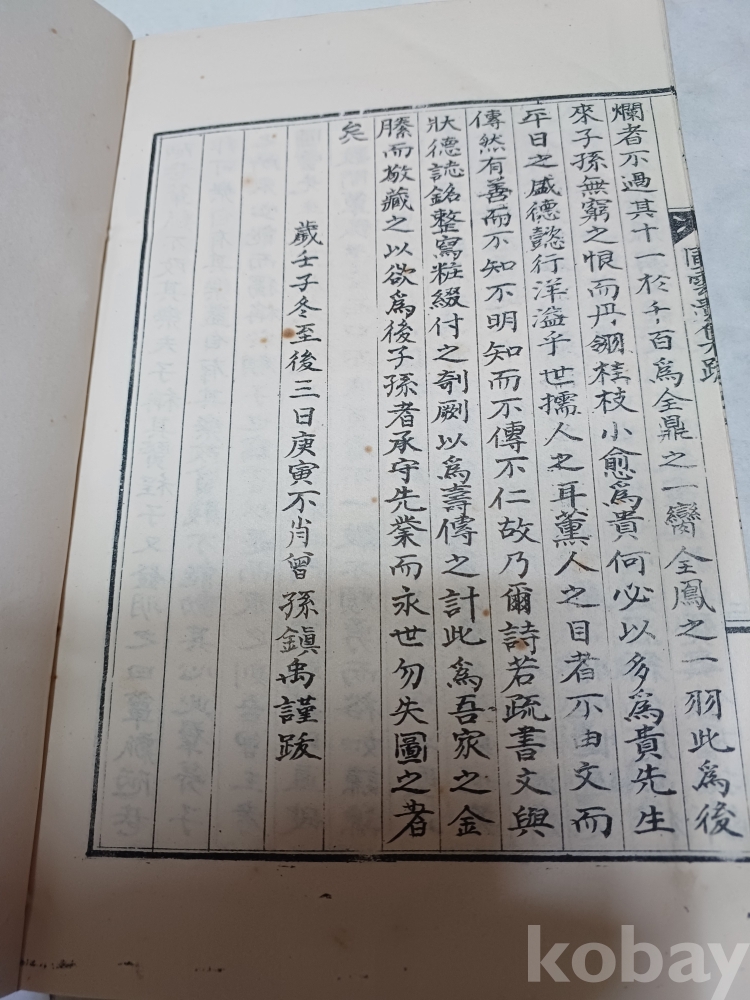 爛者不過其十一於千百爲全鼎之一臠全鳳之一羽此爲後
來子孫無窮之恨而丹羽桂枝小愈爲貴何必以多爲貴先生
平日之盛德懿行洋溢乎世擩人之耳薰人之目者不由文而
傳然有善而不知不明知而不傳不仁故乃爾詩若疏書文與
狀德誌銘整寫粧綴付之剞劂以爲壽傳之計此爲吾家之金
縢而敬藏之以欲爲後子孫者承守先業而永世勿失圖之者
矣
歲壬子冬至後三日庚寅不肖曾孫鎭禹謹跋
kobay